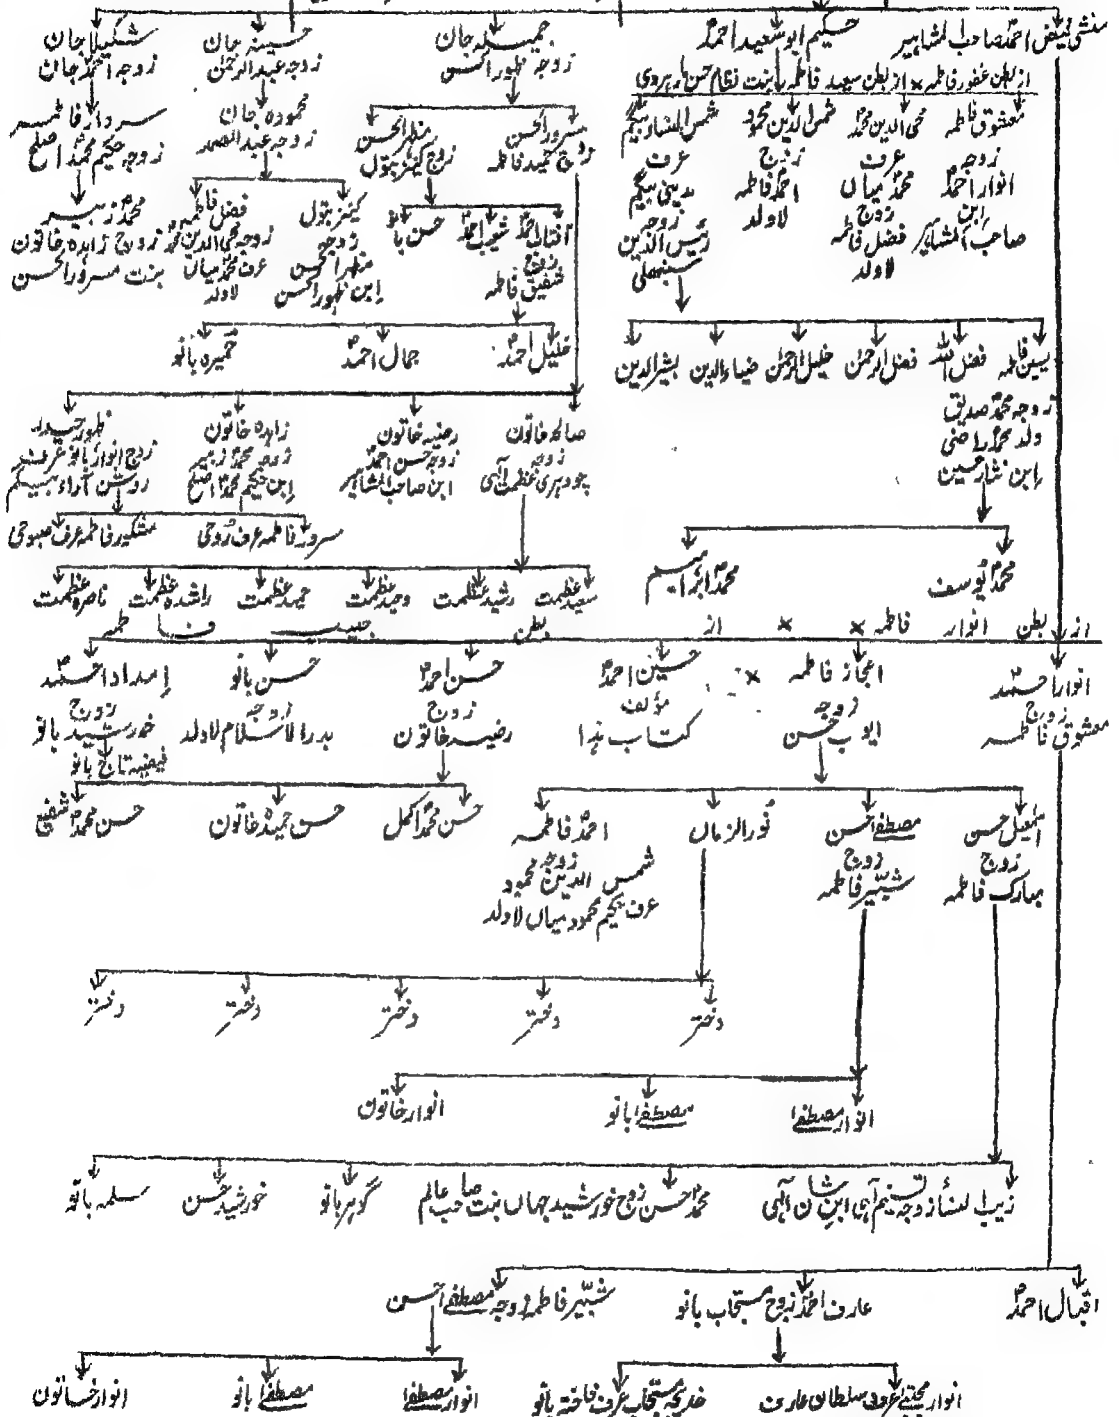 منشی فیض احمد صاحب المشاہیر
حکیم ابو سعید احمد
جمیلہ جان
زوجہ ظہور الحسن
حسینہ جان
زوجہ عبد الرحمٰن
شکیلا جان
زوجہ احمد جان
از بطن غفور فاطمہ × از بطن سعید فاطمہ بنت نظام حسن مارہروی
معشوق فاطمہ
زوجہ
انوار احمد
ابن
صاحب المشاہیر
محی الدین محمد
عرف
محمد میاں
زوج
فضل فاطمہ
لاولد
شمس الدین محمود
زوج
احمد فاطمہ
لاولد
شمس النساء بیگم
عرف
مدینی بیگم
زوجہ
رئیس الدین
سنبھلی
سرور الحسن
زوج حمید فاطمہ
منظر الحسن
زوج کنیز بتول
محمودہ جان
زوجہ عبد الصمد
سردار فاطمہ
زوجہ حکیم محمد اصلح
آفتاب احمد
زوج
شفیق فاطمہ
شعیب احمد
حسن بانو
کنیز بتول
زوجہ
منظر الحسن
ابن ظہور الحسن
فضل فاطمہ
زوجہ محی الدین محمد
عرف محمد میاں
لاولد
محمد زبیر
زوج زاہدہ خاتون
بنت سرور الحسن
یسین فاطمہ
زوجہ محمد صدیق
ولد محمد راضی
ابن نثار حسین
فضل اللہ
فضل الرحمٰن
خلیل الرحمٰن
ضیاء الدین
بشیر الدین
خلیل احمد
جمال احمد
حمیرہ بانو
صالحہ خاتون
زوجہ
چودہری عظمت الٰہی
رضیہ خاتون
زوجہ حسن احمد
ابن صاحب المشاہیر
زاہدہ خاتون
زوجہ محمد زبیر
ابن حکیم محمد اصلح
ظہور حیدر
زوج انوار بانو عرف
روشن آراء بیگم
سرور فاطمہ عرف روحی
مشکور فاطمہ عرف صبوحی
محمد یوسف
محمد ابراہیم
سعید عظمت
رشید عظمت
وحید عظمت
حمید عظمت
راشدہ عظمت
ناصرہ عظمت
از بطن انوار فاطمہ × × از بطن حبیب فاطمہ
انوار احمد
زوج
معشوق فاطمہ
اعجاز فاطمہ ×
زوجہ
ایوب حسن
حسین احمد
مؤلف
کتاب ہٰذا
حسن احمد
زوج
رضیہ خاتون
حسن بانو
زوجہ
بدر الاسلام لاولد
امداد احمد
زوج
خورشید بانو
فیضیہ تاج بانو
اسمٰعیل حسن
زوج
مبارک فاطمہ
مصطفےٰ حسن
زوج
شبیر فاطمہ
نور الزماں
احمد فاطمہ
زوجہ
شمس الدین محمود
عرف حکیم محمود میاں لاولد
حسن محمد اکمل
حسن حمیدہ خاتون
حسن محمد شفیع
دختر
دختر
دختر
دختر
دختر
انوار مصطفےٰ
مصطفےٰ بانو
انوار خاتون
زیب النساء زوجہ تسنیم الٰہی ابن شان الٰہی
محمد حسن زوج خورشید جہاں بنت صاحب عالم
گوہر بانو
خورشید حسن
سلمہ بانو
اقبال احمد
عارف احمد زوج مستجاب بانو
شبیر فاطمہ زوجہ مصطفےٰ حسن
انوار مجتبےٰ عرف سلطان عارف
خدیجہ مستجاب عرف فاختہ بانو
انوار مصطفےٰ
مصطفےٰ بانو
انوار خاتون